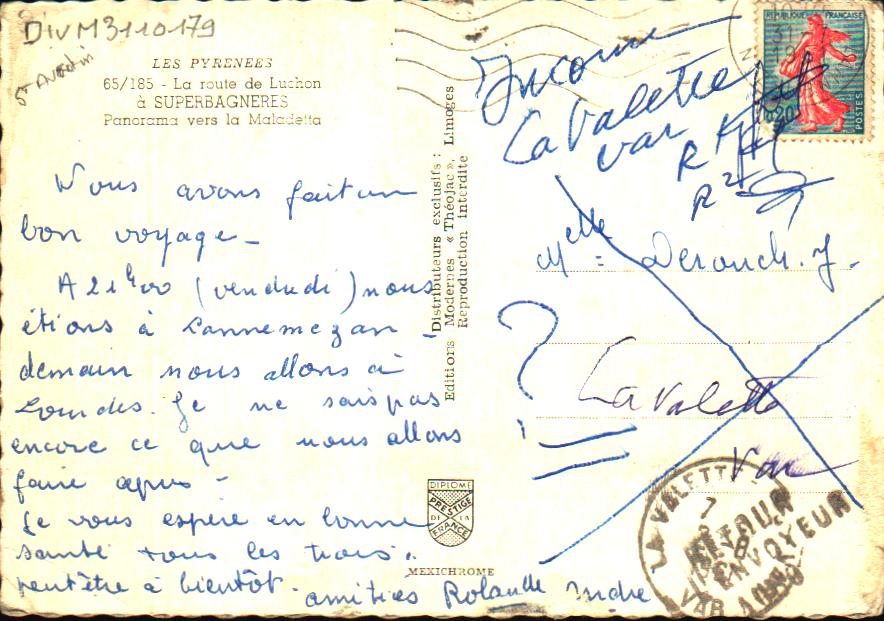 DIVM3110179
St Avertin
LES PYRENEES
65/185 - La route de Luchon
à SUPERBAGNERES
Panorama vers la Maladetta
Nous avons fait un
bon voyage -
A 21h00 (vendredi) nous
étions à Lannemezan
demain nous allons à
Lourdes. Je ne sais pas
encore ce que nous allons
faire après -
Je vous espère en bonne
santé tous les trois.
peut être à bientôt - amitiés Rolande
Distributeurs exclusifs :
Editions Modernes « Théojac », Limoges
Reproduction interdite
DIPLOME
PRESTIGE
DE LA
FRANCE
MEXICHROME
REPUBLIQUE FRANÇAISE
0,20
POSTES
Inconnu
La Valette
Var
R 1
R 2
Melle = Derouch. J.
?
La Valette
Var
LA VALETTE
7
8
VAR
RETOUR
A L'ENVOYEUR